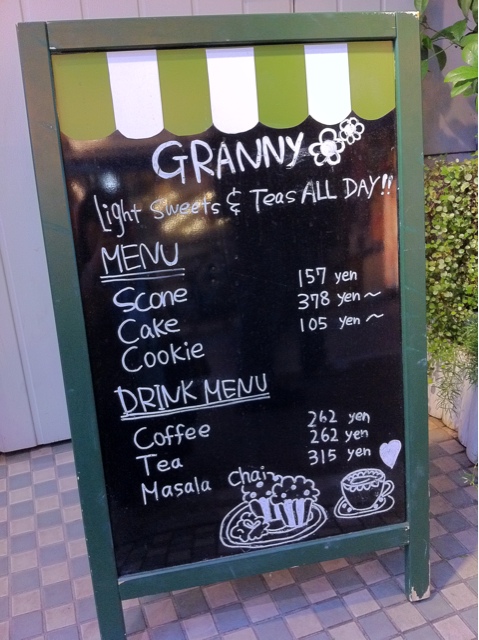 GRANNY
Light Sweets & Teas ALL DAY!!
MENU
Scone 157 yen
Cake 378 yen~
Cookie 105 yen~
DRINK MENU
Coffee 262 yen
Tea 262 yen
Masala Chai 315 yen